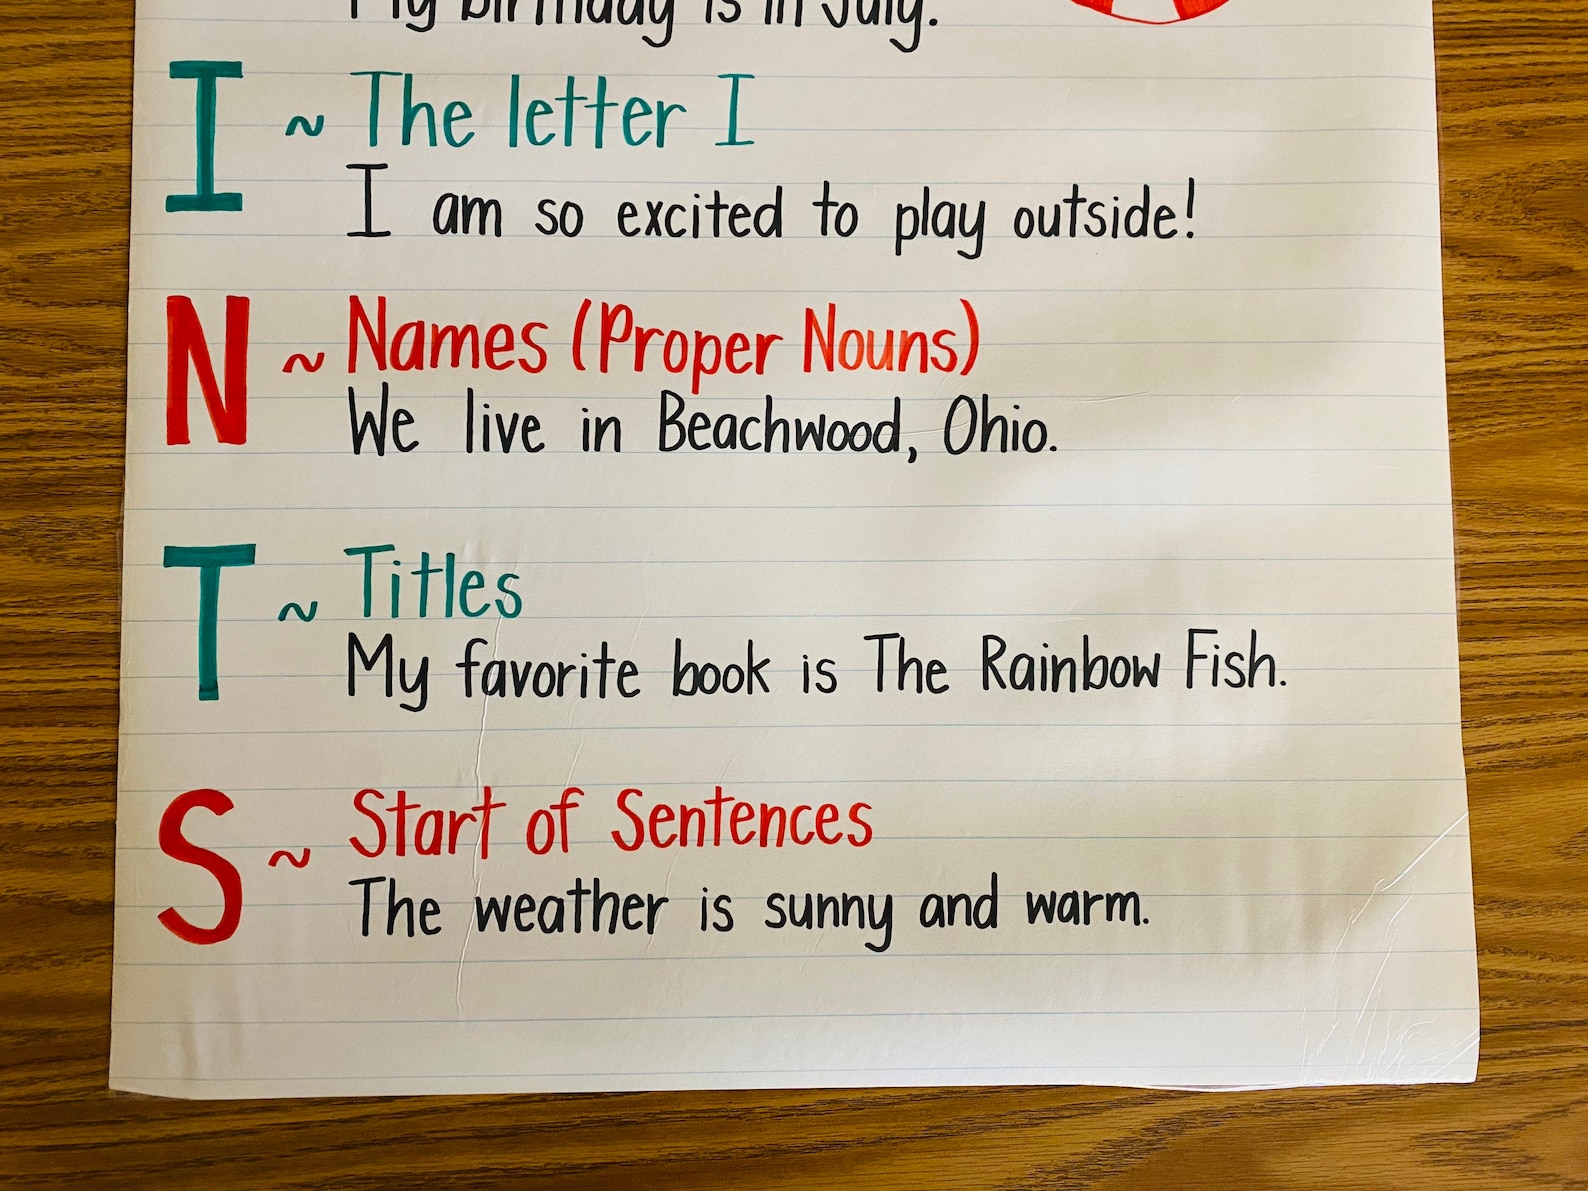 My birthday is in July.
I ~ The letter I
I am so excited to play outside!
N ~ Names (Proper Nouns)
We live in Beachwood, Ohio.
T ~ Titles
My favorite book is The Rainbow Fish.
S ~ Start of Sentences
The weather is sunny and warm.